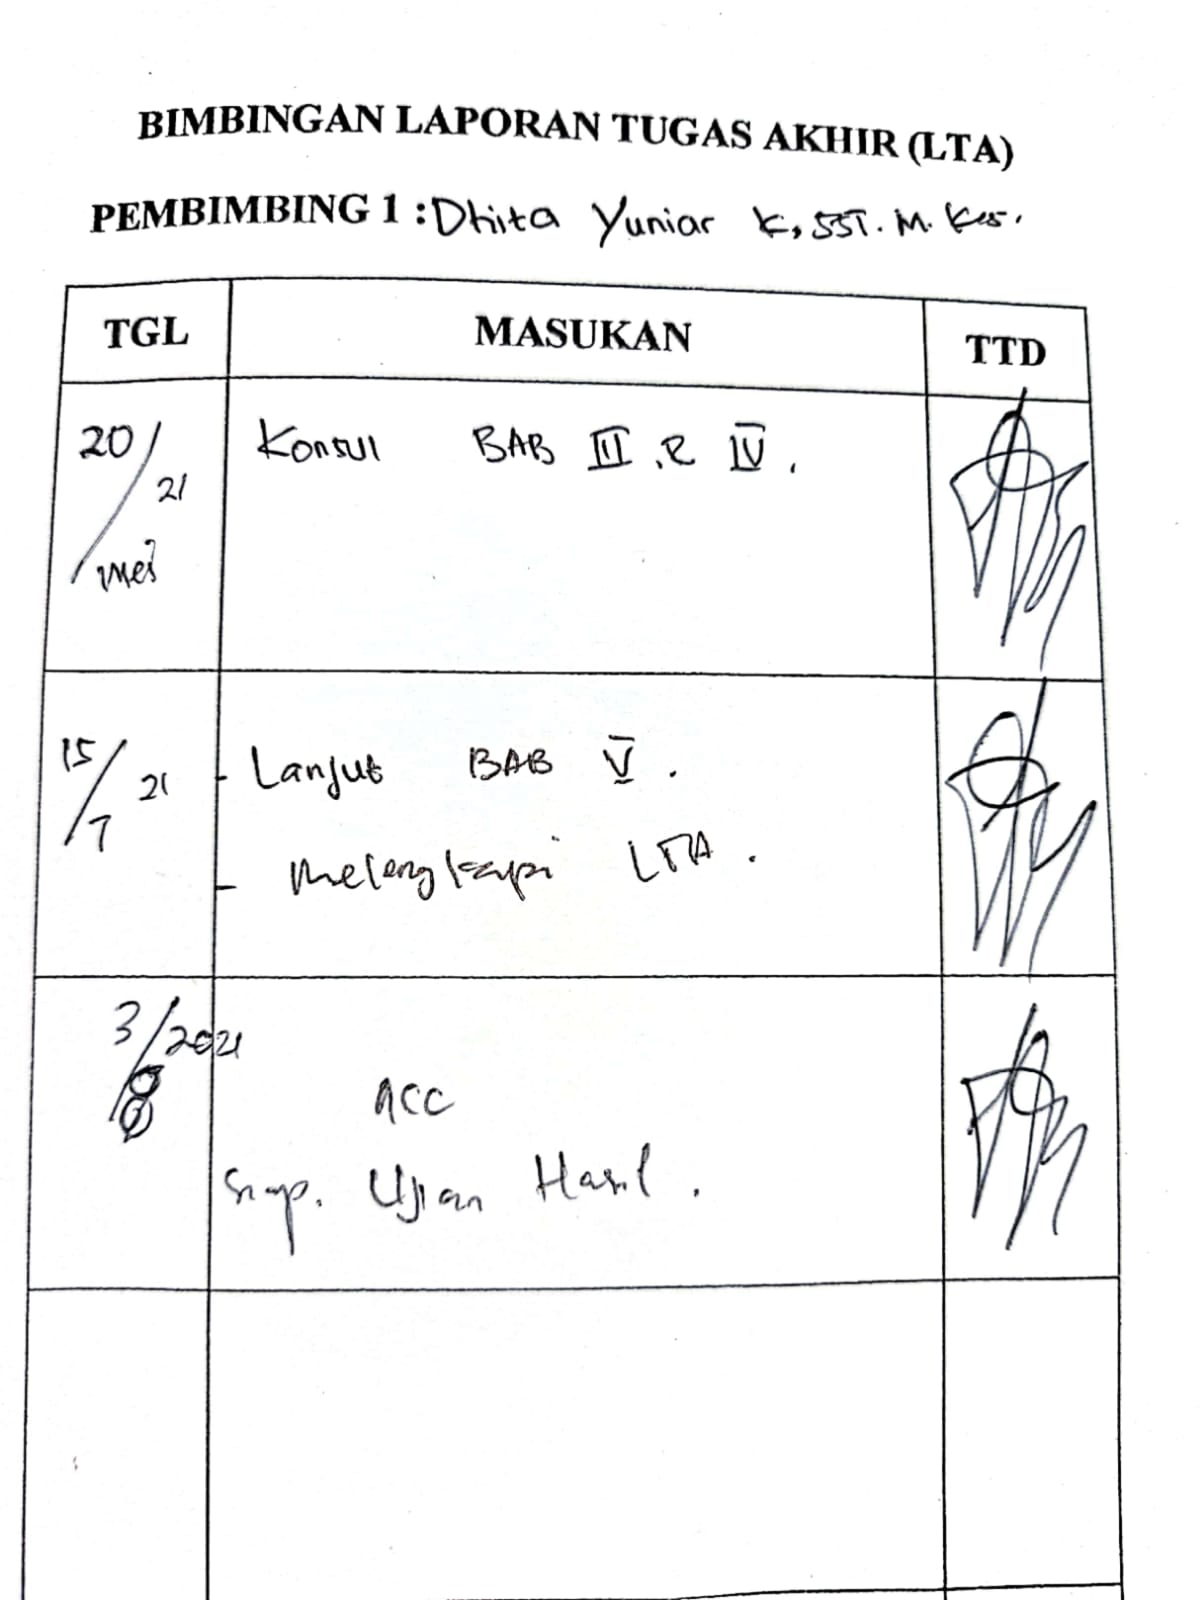 BIMBINGAN LAPORAN TUGAS AKHIR (LTA)
PEMBIMBING 1 : Dhita Yuniar K, SST. M. Kes.
TGL MASUKAN TTD
20/mei 21 Konsul BAB III & IV.
15/7 21 - Lanjut BAB V.
- Melengkapi LTA.
3/8 2021
ACC
Siap. Ujian Hasil.